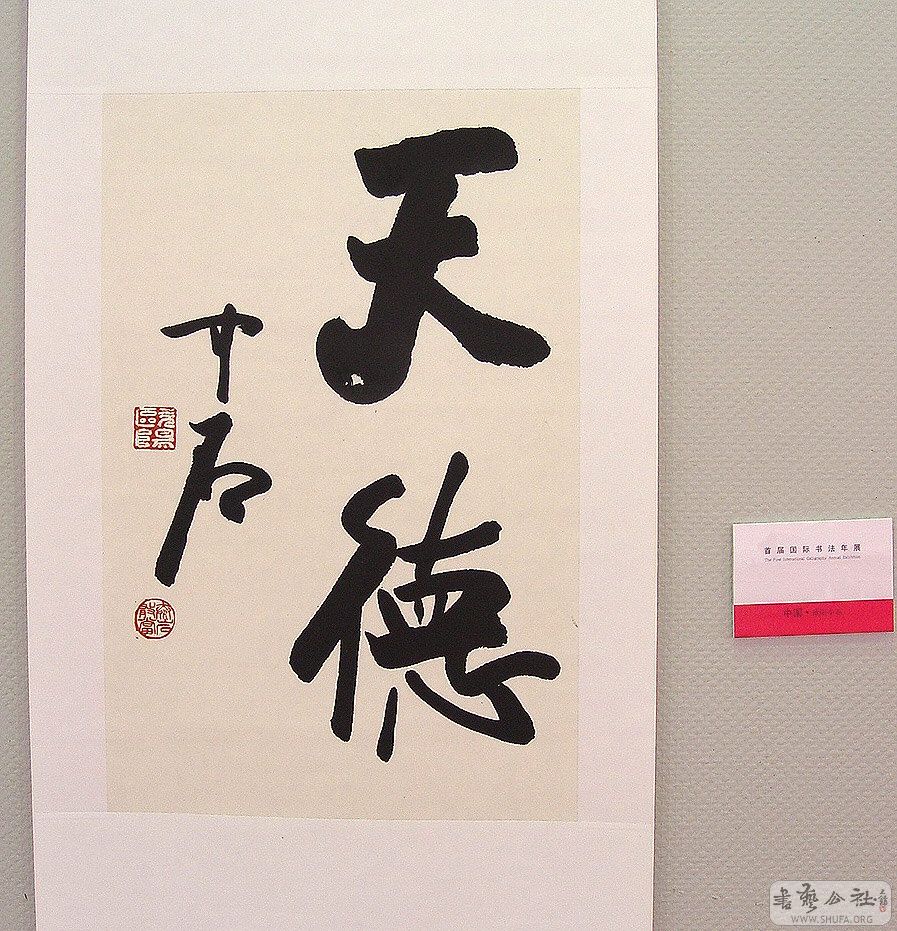 天德
中石
首届国际书法年展
The First International Calligraphy Annual Exhibition
中国·
书艺公社
WWW.SHUFA.ORG